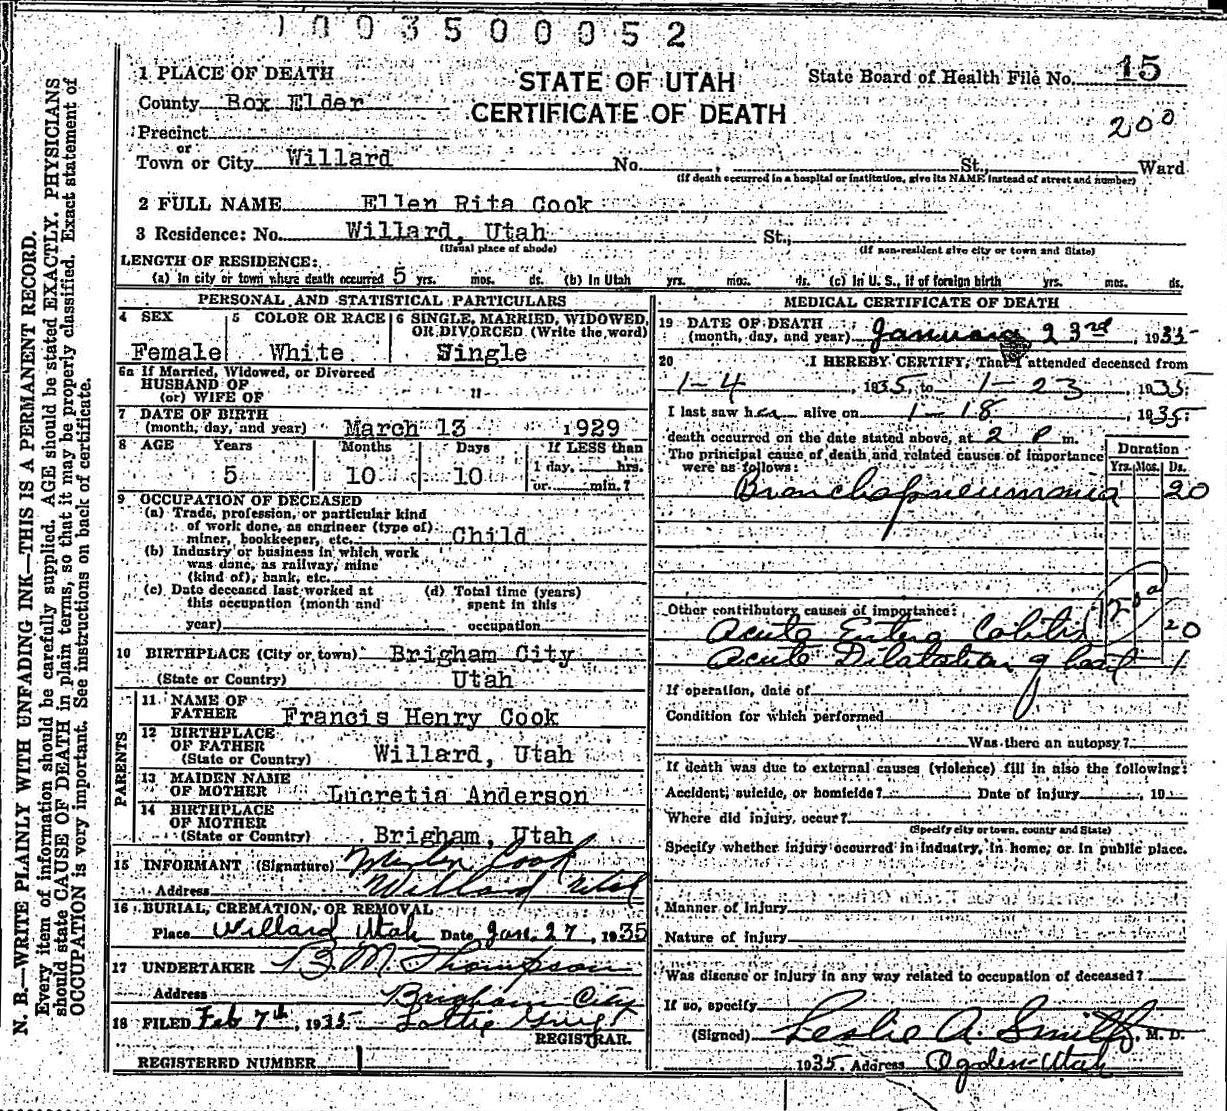 1003500052
STATE OF UTAH
CERTIFICATE OF DEATH
State Board of Health File No. 15
200
1 PLACE OF DEATH
County Box Elder
Precinct
or
Town or City Willard No. , St., Ward
(If death occurred in a hospital or institution, give its NAME instead of street and number)
2 FULL NAME Ellen Rita Cook
3 Residence: No. Willard, Utah St.,
(Usual place of abode) (If non-resident give city or town and State)
LENGTH OF RESIDENCE:
(a) In city or town where death occurred 5 yrs. mos. ds. (b) In Utah yrs. mos. ds. (c) In U. S., if of foreign birth yrs. mos. ds.
PERSONAL AND STATISTICAL PARTICULARS
4 SEX 5 COLOR OR RACE 6 SINGLE, MARRIED, WIDOWED,
OR DIVORCED (Write the word)
Female White Single
6a If Married, Widowed, or Divorced
HUSBAND OF
(or) WIFE OF "
7 DATE OF BIRTH
(month, day, and year) March 13 1929
8 AGE Years Months Days If LESS than
5 10 10 1 day, hrs.
or min.?
9 OCCUPATION OF DECEASED
(a) Trade, profession, or particular kind
of work done, as engineer (type of)
miner, bookkeeper, etc. Child
(b) Industry or business in which work
was done, as railway, mine
(kind of), bank, etc.
(c) Date deceased last worked at (d) Total time (years)
this occupation (month and spent in this
year) occupation
10 BIRTHPLACE (City or town) Brigham City
(State or Country) Utah
PARENTS
11 NAME OF
FATHER Francis Henry Cook
12 BIRTHPLACE
OF FATHER Willard, Utah
(State or Country)
13 MAIDEN NAME
OF MOTHER Lucretia Anderson
14 BIRTHPLACE
OF MOTHER
(State or Country) Brigham, Utah
15 INFORMANT (Signature) Cook
Address Willard Utah
16 BURIAL, CREMATION, OR REMOVAL
Place Willard Utah Date Jan. 27, 1935
17 UNDERTAKER B M Thompson
Address Brigham City
18 FILED Feb 7th, 1935 Lottie
REGISTRAR.
REGISTERED NUMBER 1
MEDICAL CERTIFICATE OF DEATH
19 DATE OF DEATH
(month, day, and year) January 23rd, 1935
20 I HEREBY CERTIFY, That I attended deceased from
1-4, 1935, to 1-23, 1935.
I last saw her alive on 1-18, 1935.
death occurred on the date stated above, at 2 P m.
The principal cause of death and related causes of importance
were as follows:
Duration
Yrs. Mos. Ds.
Bronchopneumonia 20
Other contributory causes of importance:
Acute Entero Colitis 20
Acute Dilatation of heart 1
If operation, date of
Condition for which performed
Was there an autopsy?
If death was due to external causes (violence) fill in also the following:
Accident, suicide, or homicide? Date of injury , 19
Where did injury occur?
(Specify city or town, county and State)
Specify whether injury occurred in industry, in home, or in public place.
Manner of injury
Nature of injury
Was disease or injury in any way related to occupation of deceased?
If so, specify
(Signed) Leslie A. Smith, M. D.
1935. Address Ogden-Utah
N. B.—WRITE PLAINLY WITH UNFADING INK—THIS IS A PERMANENT RECORD.
Every item of information should be carefully supplied. AGE should be stated EXACTLY. PHYSICIANS
should state CAUSE OF DEATH in plain terms, so that it may be properly classified. Exact statement of
OCCUPATION is very important. See instructions on back of certificate.